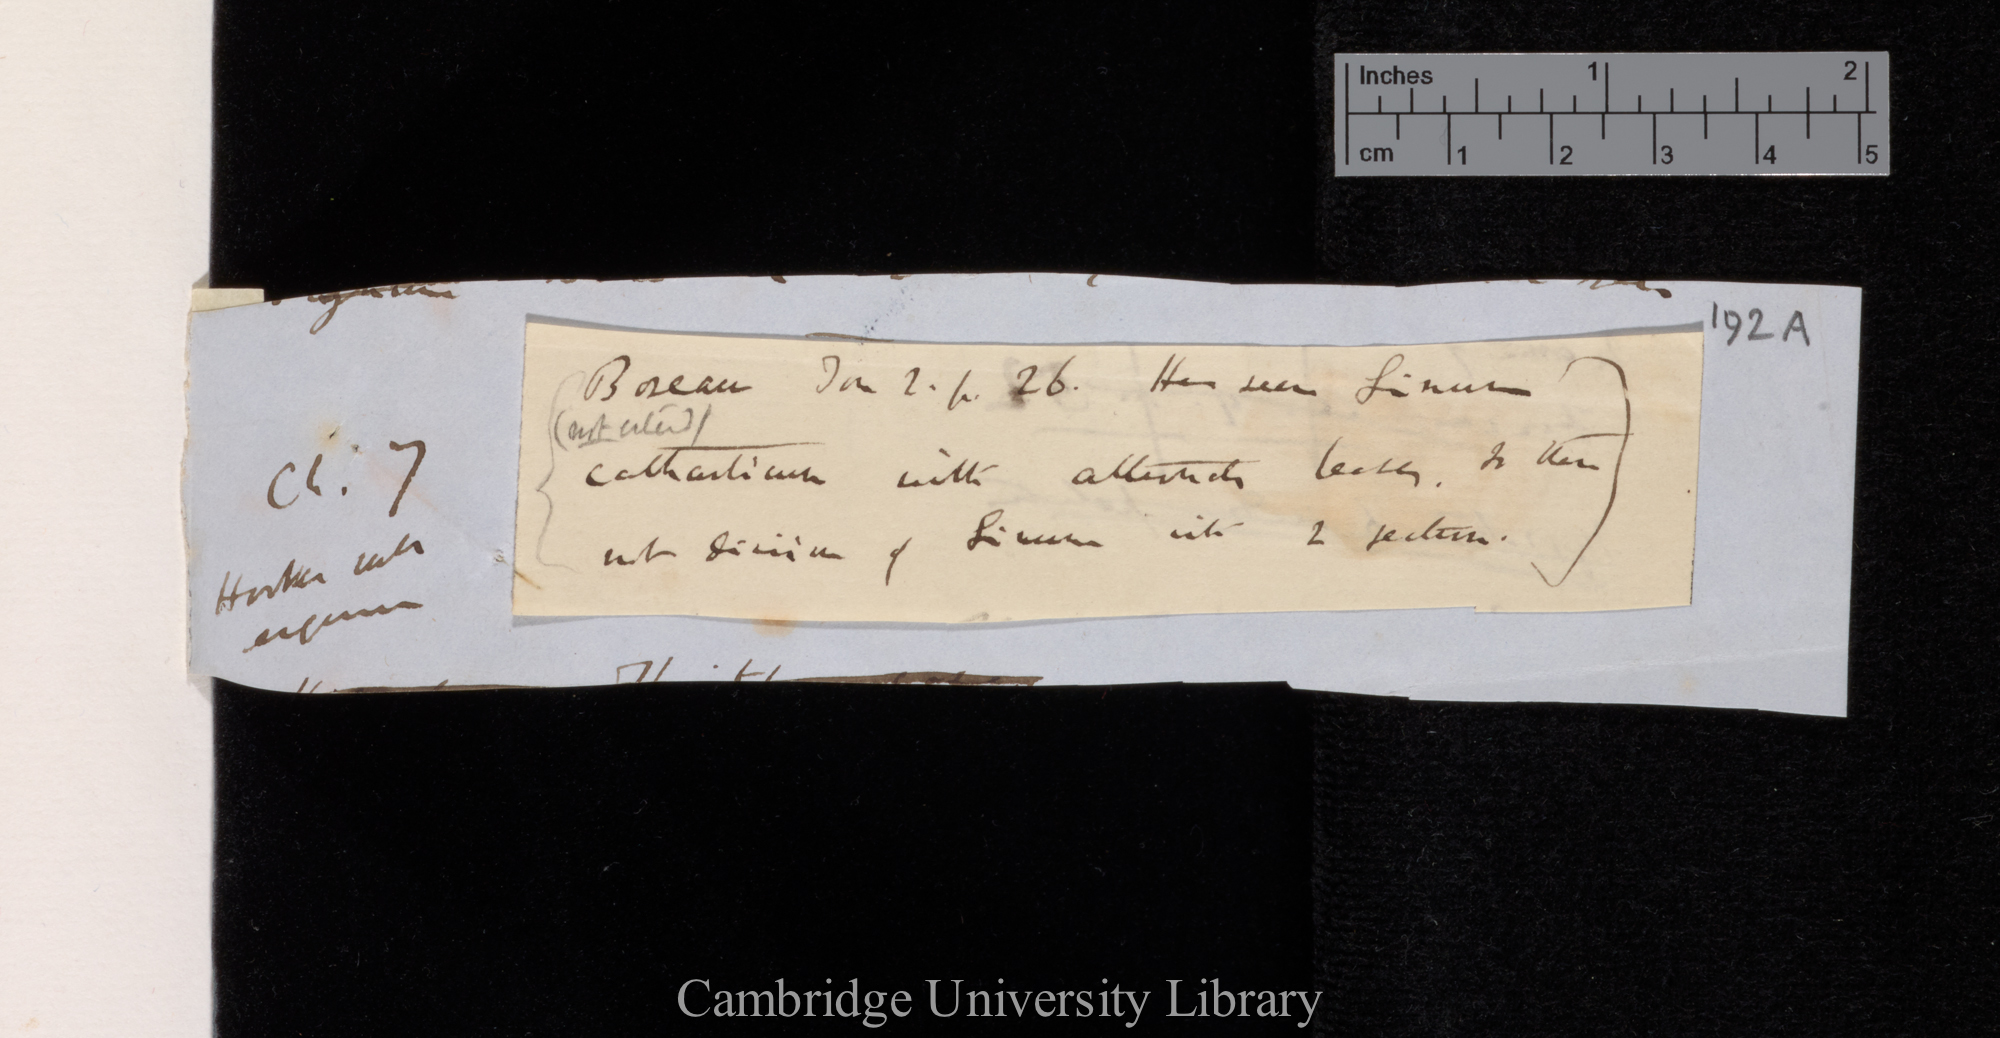 192 A
Boreau Tom 2. p. 26. Has seen Linum
(not uled)
catharticum with alternate leaves. So there
not division of Linum into 2 sections.
Ch. 7
Hooker
Inches 1 2
cm 1 2 3 4 5
Cambridge University Library